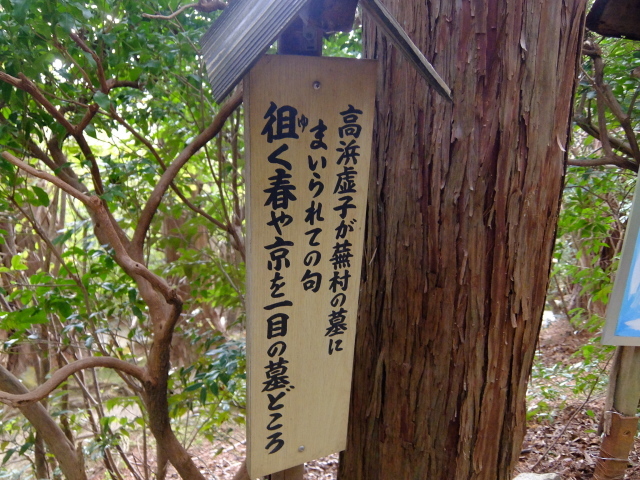 高浜虚子が蕪村の墓に
まいられての句
徂く春や京を一目の墓どころ
ゆ